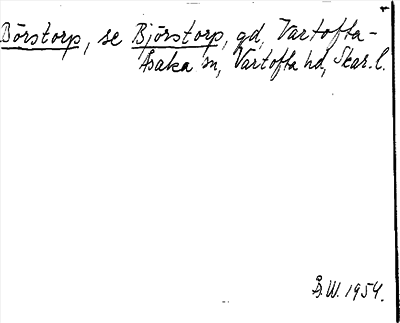 Börstorp, se Bjärstorp, gd, Vartofta-
Åsaka sn, Vartofta hd, Skar. l.
Å.W. 1954.